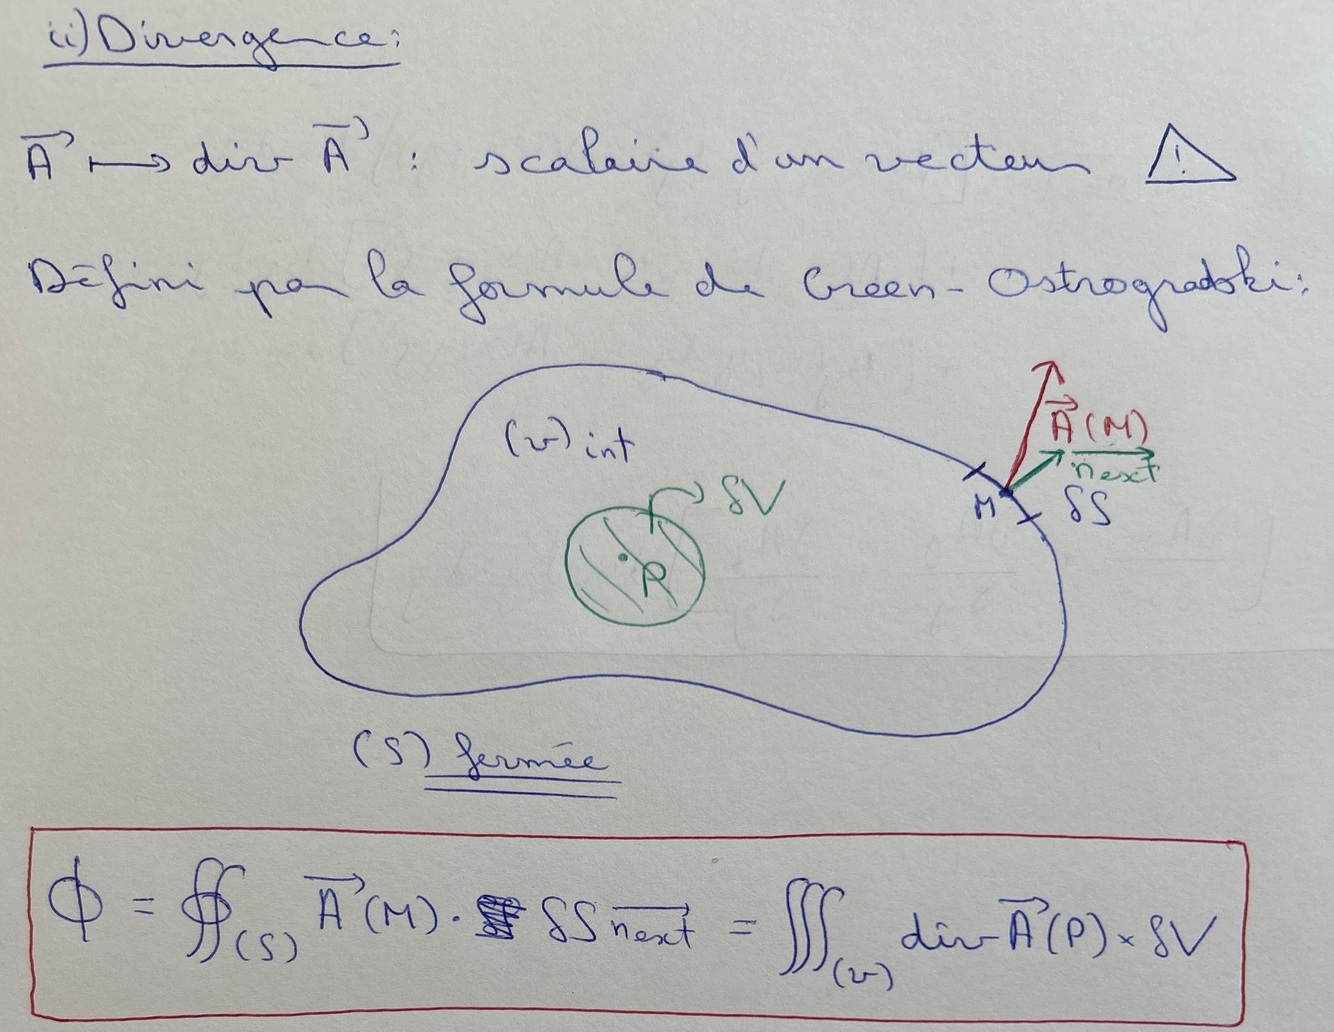 ii) Divergence:
A⃗ ⟼ div A⃗ : scalaire d'un vecteur ⚠
Défini par la formule de Green-Ostrogradski:
(v) int
δV
P
A⃗(M)
n⃗ext
M δS
(S) fermée
ϕ = ∯(S) A⃗(M) · δS n⃗ext = ∭(v) div A⃗(P) × δV